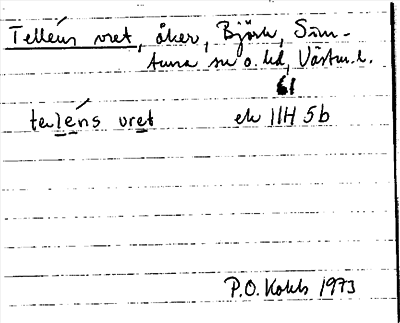 Telléns vret, åker, Björk, Sim-
tuna sn o. hd, Västm. l.
61
telé́ns vret ek 11H 5b
P.O. Kolsb 1973